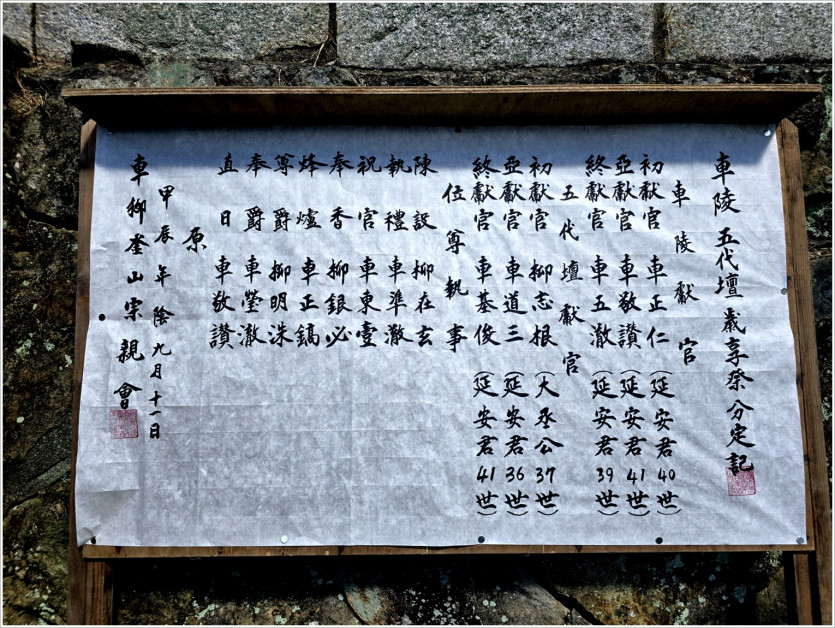 車陵五代壇歲享祭分定記
車陵獻官
初獻官 車正仁 (延安君40世)
亞獻官 車敬讃 (延安君41世)
終獻官 車五澈 (延安君39世)
五代壇獻官
初獻官 柳志根 (大丞公37世)
亞獻官 車道三 (延安君36世)
終獻官 車基俊 (延安君41世)
位尊執事
陳設 柳在玄
執禮 車準澈
祝官 車東壹
奉香 柳銀必
烽爐 車正鎬
尊爵 柳明洙
奉爵 車瑩澈
直日 車敬讃
原
甲辰年 陰九月十一日
車柳釜山宗親會